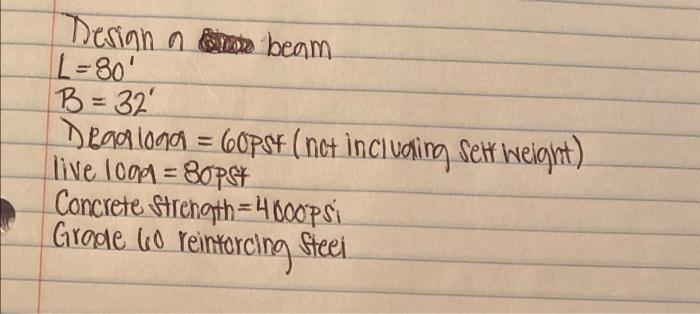 Design a beam
L = 80'
B = 32'
Dead load = 60psf (not including self weight)
live load = 80psf
Concrete strength = 4000psi
Grade 60 reinforcing steel